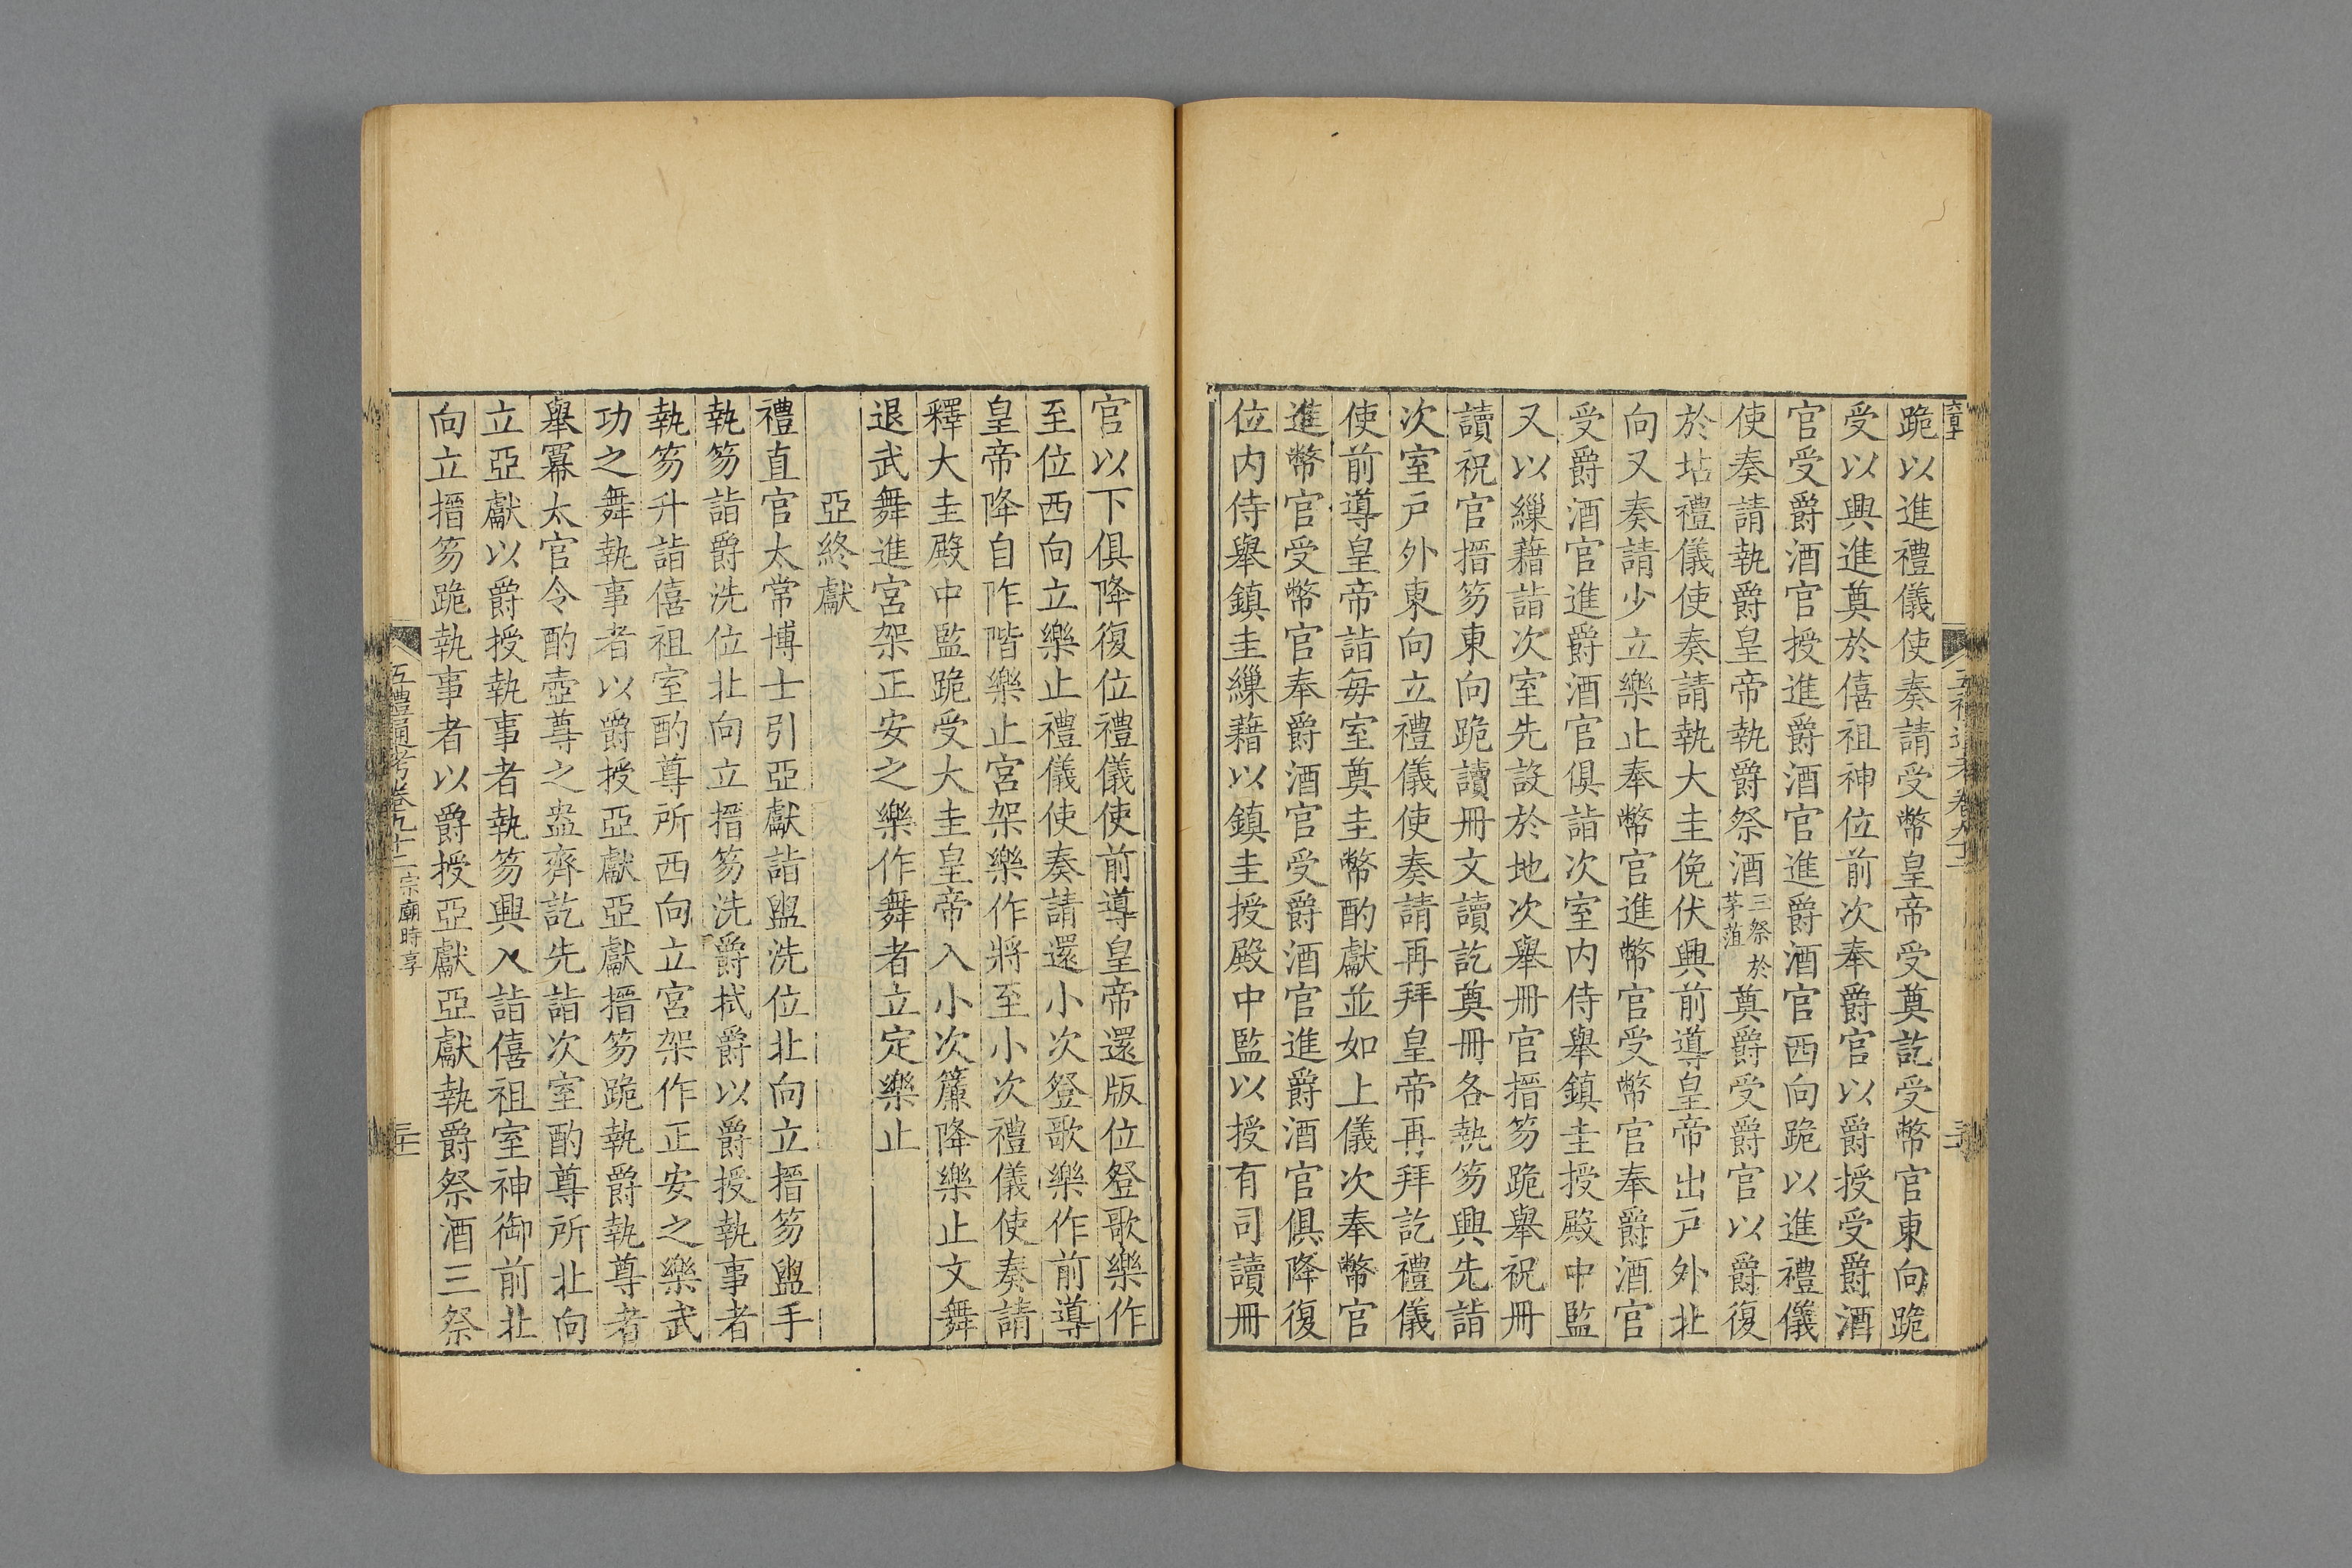 跪以進禮儀使奏請受幣皇帝受奠訖受幣官東向跪
受以興進奠於僖祖神位前次奉爵官以爵授受爵酒
官受爵酒官授進爵酒官進爵酒官西向跪以進禮儀
使奏請執爵皇帝執爵祭酒三祭於茅葅奠爵受爵官以爵復
於坫禮儀使奏請執大圭俛伏興前導皇帝出戶外北
向又奏請少立樂止奉幣官進幣官受幣官奉爵酒官
受爵酒官進爵酒官俱詣次室内侍舉鎮圭授殿中監
又以繅藉詣次室先設於地次舉冊官搢笏跪舉祝冊
讀祝官搢笏東向跪讀冊文讀訖奠冊各執笏興先詣
次室戶外東向立禮儀使奏請再拜皇帝再拜訖禮儀
使前導皇帝詣每室奠圭幣酌獻並如上儀次奉幣官
進幣官受幣官奉爵酒官受爵酒官進爵酒官俱降復
位内侍舉鎮圭繅藉以鎮圭授殿中監以授有司讀冊
官以下俱降復位禮儀使前導皇帝還版位登歌樂作
至位西向立樂止禮儀使奏請還小次登歌樂作前導
皇帝降自阼階樂止宮架樂作將至小次禮儀使奏請
釋大圭殿中監跪受大圭皇帝入小次簾降樂止文舞
退武舞進宮架正安之樂作舞者立定樂止
亞終獻
禮直官太常博士引亞獻詣盥洗位北向立搢笏盥手
執笏詣爵洗位北向立搢笏洗爵拭爵以爵授執事者
執笏升詣僖祖室酌尊所西向立宮架作正安之樂武
功之舞執事者以爵授亞獻亞獻搢笏跪執爵執尊者
舉冪太官令酌壺尊之盎齊訖先詣次室酌尊所北向
立亞獻以爵授執事者執笏興入詣僖祖室神御前北
向立搢笏跪執事者以爵授亞獻亞獻執爵祭酒三祭
五禮通考卷九十二宗廟時享